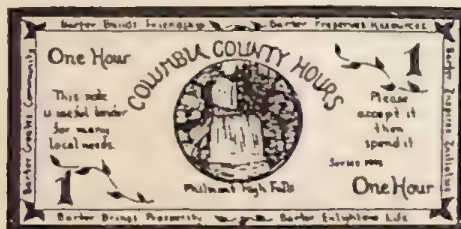 Barter Builds Friendship
Barter Preserves Resources
Barter Creates Community
Barter Inspires Initiative
One Hour
COLUMBIA COUNTY HOURS
1
This note
is useful tender
for many
local needs.
Please
accept it
then
spend it
Series 1995
1
Philmont High Falls
One Hour
Barter Brings Prosperity
Barter Enlightens Life